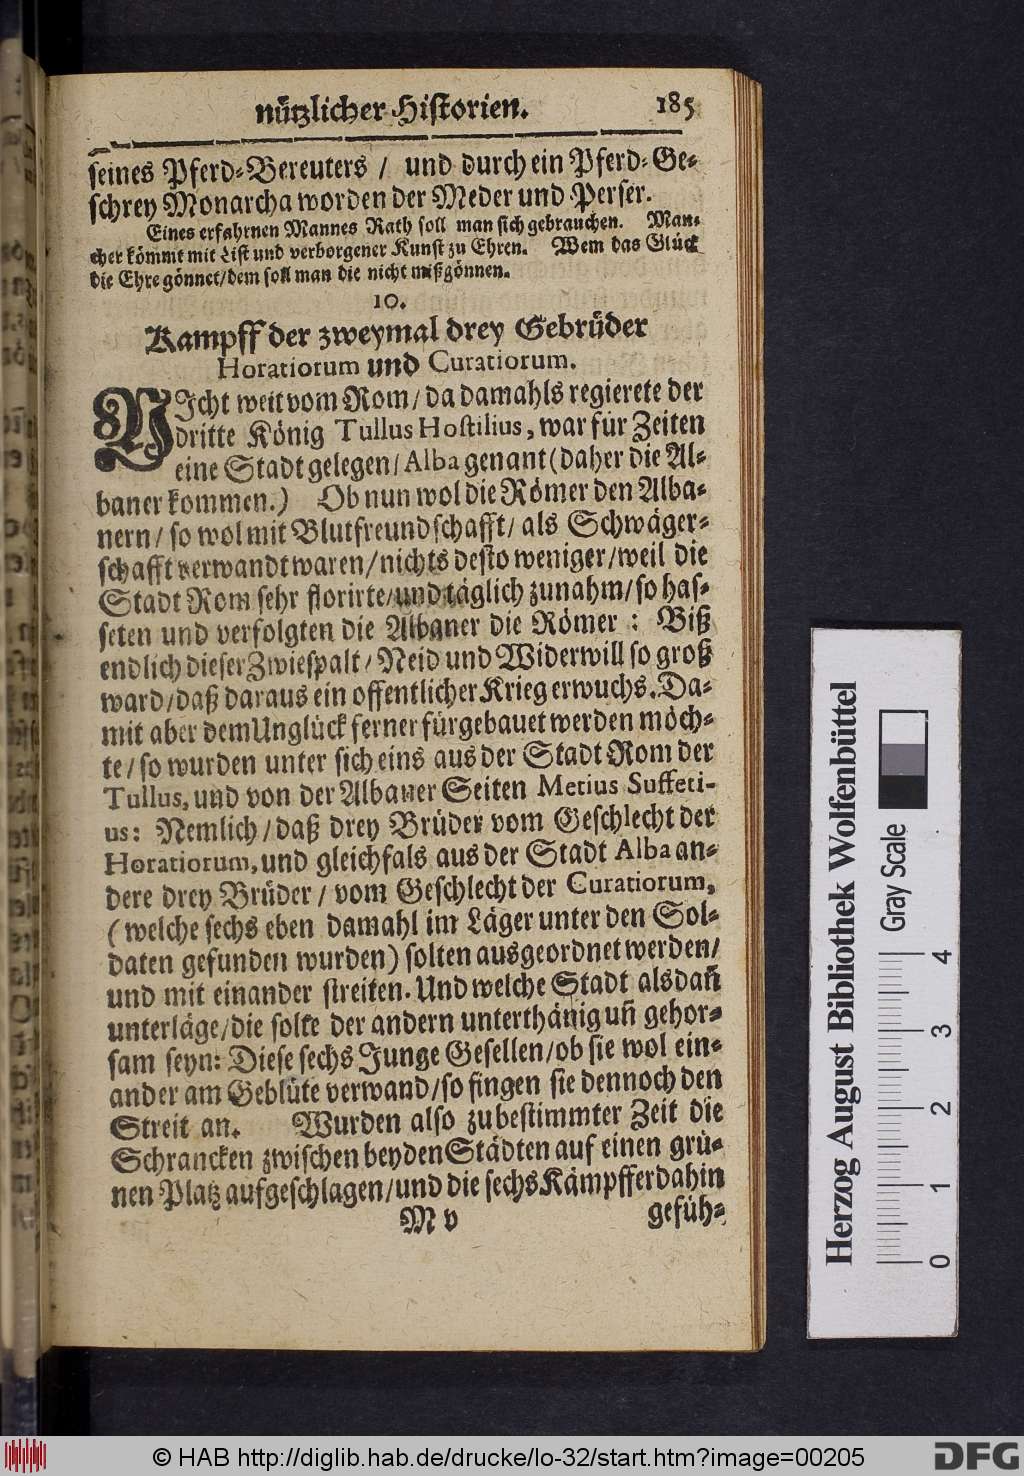 nützlicher Historien. 185
seines Pferd-Bereuters / und durch ein Pferd-Ge-
schrey Monarcha worden der Meder und Perser.
Eines erfahrnen Mannes Rath soll man sich gebrauchen. Man-
cher kömmt mit List und verborgener Kunst zu Ehren. Wem das Glück
die Ehre gönnet/dem soll man die nicht mißgönnen.
10.
Kampff der zweymal drey Gebrüder
Horatiorum und Curatiorum.
NIcht weit vom Rom/ da damahls regierete der
dritte König Tullus Hostilius, war für Zeiten
eine Stadt gelegen/ Alba genant (daher die Al-
baner kommen.) Ob nun wol die Römer den Alba-
nern/ so wol mit Blutfreundschafft/ als Schwäger-
schafft verwandt waren/ nichts desto weniger/ weil die
Stadt Rom sehr florirte/ und täglich zunahm/ so has-
seten und verfolgten die Albaner die Römer : Biß
endlich dieser Zwiespalt/ Neid und Widerwill so groß
ward/ daß daraus ein offentlicher Krieg erwuchs. Da-
mit aber dem Unglück ferner fürgebauet werden möch-
te/ so wurden unter sich eins aus der Stadt Rom der
Tullus, und von der Albaner Seiten Metius Suffeti-
us: Nemlich/ daß drey Brüder vom Geschlecht der
Horatiorum, und gleichfals aus der Stadt Alba an-
dere drey Brüder / vom Geschlecht der Curatiorum,
( welche sechs eben damahl im Läger unter den Sol-
daten gefunden wurden) solten ausgeordnet werden/
und mit einander streiten. Und welche Stadt alsdañ
unterläge/ die solte der andern unterthänig uñ gehor-
sam seyn: Diese sechs Junge Gesellen/ ob sie wol ein-
ander am Geblüte verwand/ so fingen sie dennoch den
Streit an. Wurden also zu bestimmter Zeit die
Schrancken zwischen beyden Städten auf einen grü-
nen Platz aufgeschlagen/ und die sechs Kämpffer dahin
M v gefüh-
Herzog August Bibliothek Wolfenbüttel
Gray Scale
0 1 2 3 4
© HAB http://diglib.hab.de/drucke/lo-32/start.htm?image=00205
DFG